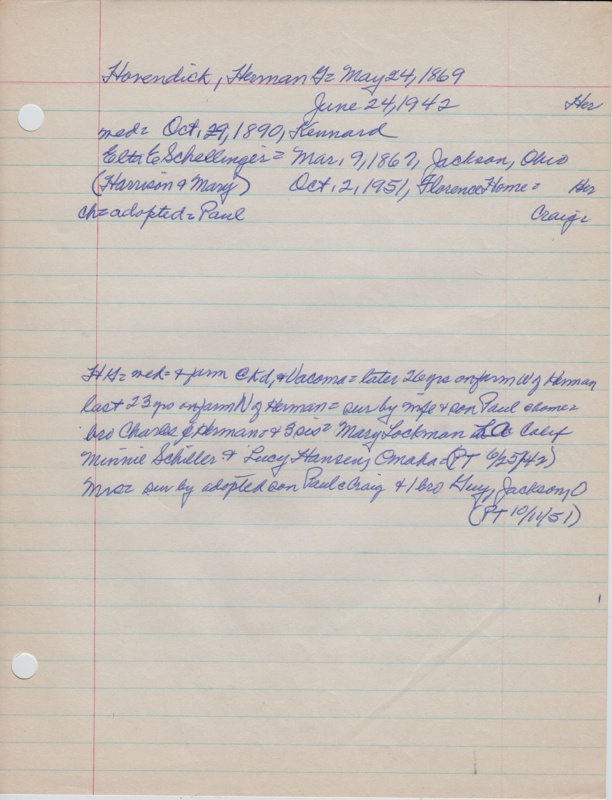 Hovendick, Herman G= May 24, 1869
June 24, 1942 Her
med= Oct. 29, 1890, Kennard
Elta E Schellinger= Mar. 9, 1867, Jackson, Ohio
(Harrison & Mary) Oct. 2, 1951, Florence Home= Her
ch= adopted= Paul Craig=
HG= med= & farm @ Kd, & Vacoma= later 26 yrs on farm W of Herman
last 23 yrs on farm N of Herman= sur by wife & son Paul @ home=
bro Charles of Herman & 3 sis= Mary Lockman LA Calif
Minnie Schiller & Lucy Hansen, Omaha= (PT 6/25/42)
Mrs= sur by adopted son Paul @ Craig & 1 bro Guy, Jackson, O
(PT 10/11/51)